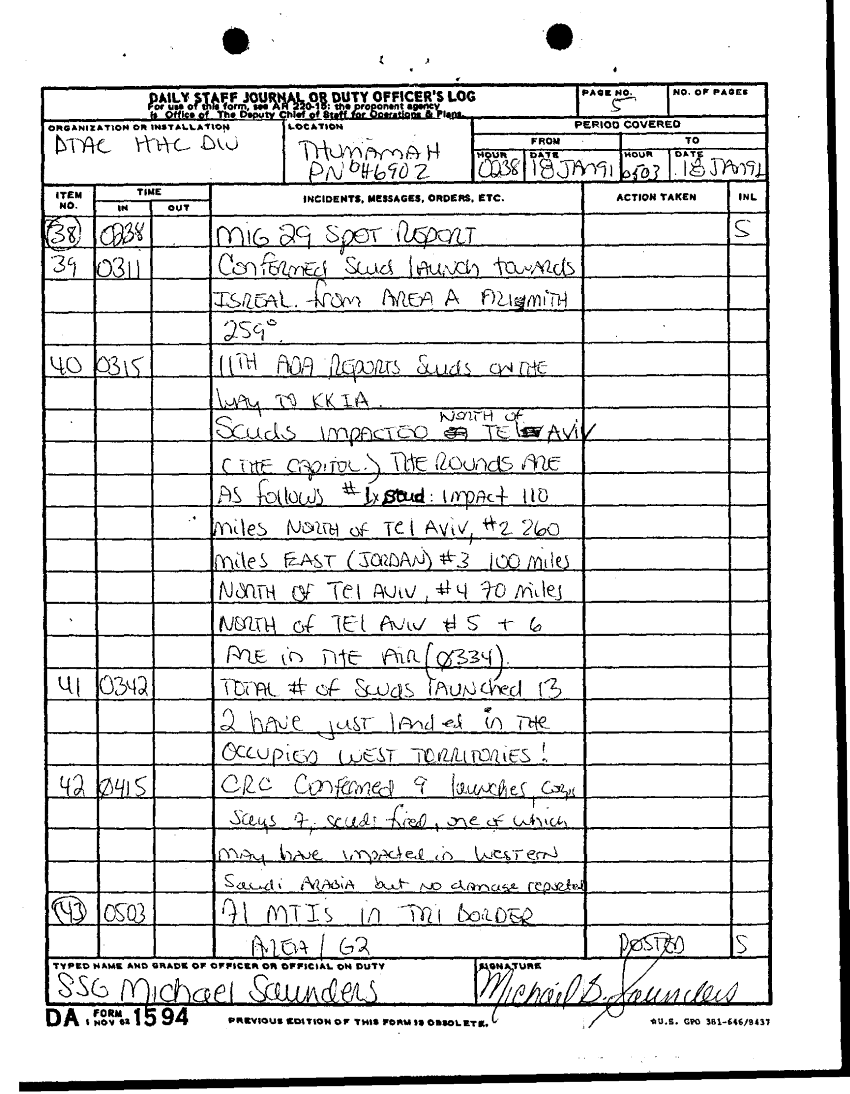 DAILY STAFF JOURNAL OR DUTY OFFICER'S LOG
For use of this form, see AR 220-15; the proponent agency
is Office of The Deputy Chief of Staff for Operations & Plans.
PAGE NO.
5
NO. OF PAGES
ORGANIZATION OR INSTALLATION
DTAC HHC DIV
LOCATION
THUMAMAH
PN 046902
PERIOD COVERED
FROM
TO
HOUR
0238
DATE
18 JAN 91
HOUR
0503
DATE
18 JAN 91
ITEM NO.
TIME
IN
OUT
INCIDENTS, MESSAGES, ORDERS, ETC.
ACTION TAKEN
INL
38 0238 MIG 29 SPOT REPORT S
39 0311 CONFERMED Scud launch towards
ISREAL. from AREA A AZIMITH
259°
40 0315 11TH ADA REPORTS Scuds ON THE
WAY TO KKIA.
Scuds IMPACTED NORTH OF TEL AVIV
(THE CAPITOL.) THE ROUNDS ARE
AS follows #1x Scud: IMPACT 110
miles NORTH OF Tel AVIV, #2 260
miles EAST (JORDAN) #3 100 miles
NORTH OF Tel AVIV, #4 70 miles
NORTH of TEl AVIV #5 + 6
ARE in THE AIR (0334).
41 0342 TOTAL # of Scuds launched 13
2 have just landed in THE
OCCUPIED WEST TERRITORIES!
42 0415 CRC Confermed 9 launches, Corps
Says 7, scuds fired, one of which
may have impacted in WESTERN
Saudi ARABIA but no damage reported
43 0503 71 MTIS in TRI BORDER
AREA / G2 POSTED S
TYPED NAME AND GRADE OF OFFICER OR OFFICIAL ON DUTY
SSG Michael Saunders
SIGNATURE
Michael S. Saunders
DA FORM 1594
1 NOV 62
PREVIOUS EDITION OF THIS FORM IS OBSOLETE.
☆U.S. GPO 381-646/8437